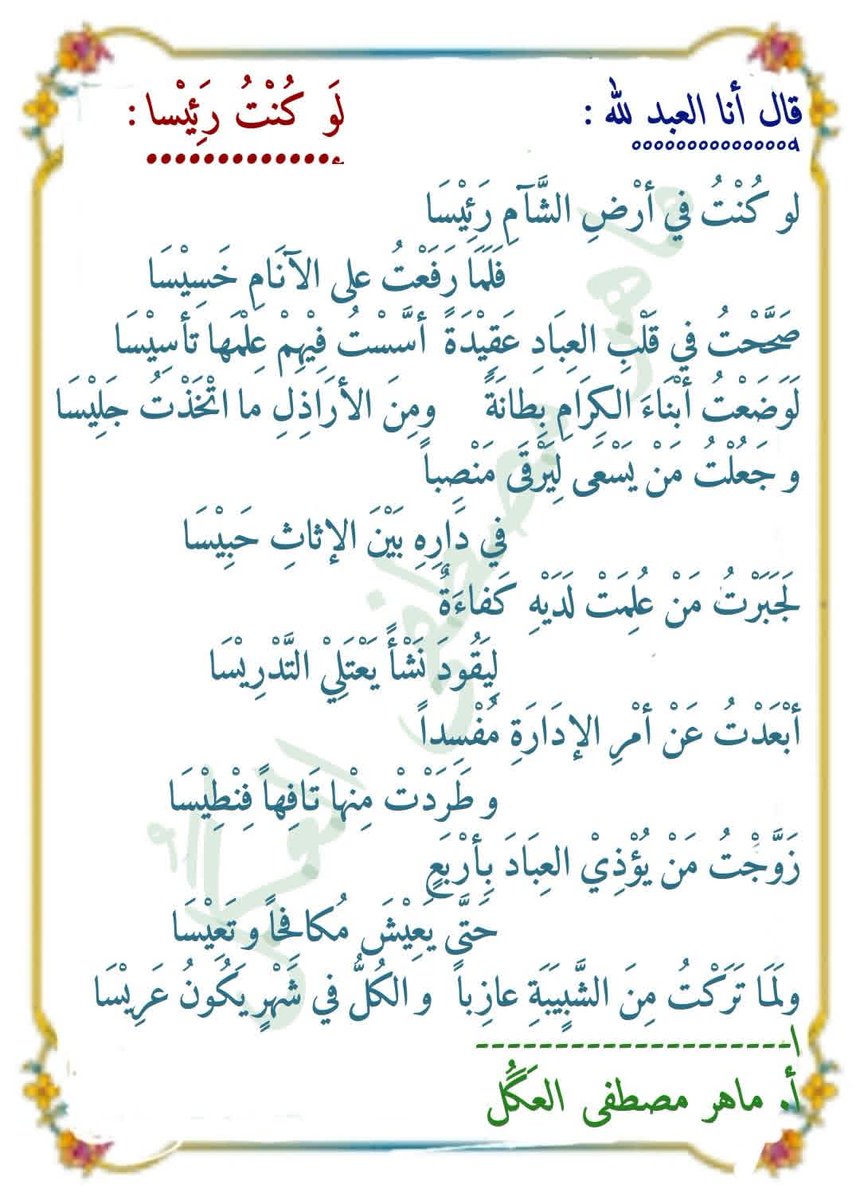 قال أنا العبد لله : لَو كُنْتُ رَئِيْسا :
لو كُنْتُ في أرْضِ الشَّآمِ رَئِيْسَا
فَلَمَا رَفَعْتُ على الآنَامِ خَسِيْسَا
صَحَّحْتُ في قَلْبِ العِبَادِ عَقِيْدَةً أسَّسْتُ فِيْهِمْ عِلْمَها تأسِيْسَا
لَوَضَعْتُ أبْنَاءَ الكِرَامِ بِطانَةً ومِنَ الأرَاذِلِ ما اتْخَذْتُ جَلِيْسَا
و جَعُلْتُ مَنْ يَسْعَى لِيَرْقَى مَنْصِباً
في دَارِهِ بَيْنَ الإثاثِ حَبِيْسَا
لَجَبَرْتُ مَنْ عُلِمَتْ لَدَيْهِ كَفاءَةٌ
لِيَقُودَ نَشْأً يَعْتَلِيْ التَّدْرِيْسَا
أبْعَدْتُ عَنْ أمْرِ الإدَارَةِ مُفْسِداً
و طَرَدْتْ مِنْها تَافِهاً فِنْطِيْسَا
زَوَّجْتُ مَنْ يُؤْذِيْ العِبَادَ بِأرْبَعٍ
حَتَّى يَعِيْشَ مُكافِحاً و تَعِيْسَا
ولَمَا تَرَكْتُ مِنَ الشَّبِيَبَةِ عازِباً و الكُلُّ في شَهْرٍ يَكُونُ عَرِيْسَا
أ. ماهر مصطفى العَگُل
ماهر مصطفى العگل